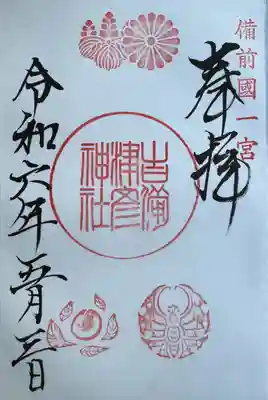 備前國一宮
奉拝
吉備
津彦
神社
令和六年五月三日